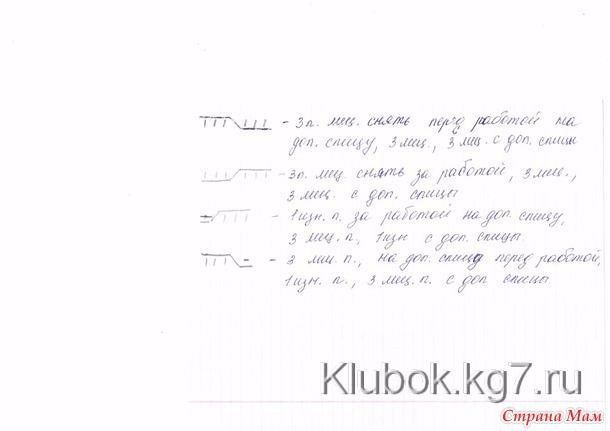 - 3п. лиц. снять перед работой на
доп. спицу, 3 лиц., 3 лиц. с доп. спицы
- 3п. лиц снять за работой, 3 лиц.,
3 лиц. с доп. спицы
- 1 изн. п. за работой на доп. спицу,
3 лиц. п, 1 изн с доп. спицы.
- 3 лиц. п., на доп. спицу перед работой,
1 изн. п., 3 лиц. п. с доп спицы
Klubok.kg7.ru
Страна Мам